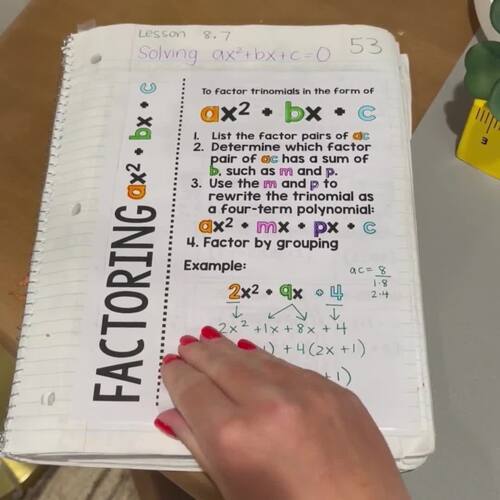 Lesson 8.7
Solving ax²+bx+c=0 53
FACTORING ax² + bx + c
To factor trinomials in the form of
ax² + bx + c
1. List the factor pairs of ac
2. Determine which factor
pair of ac has a sum of
b, such as m and p.
3. Use the m and p to
rewrite the trinomial as
a four-term polynomial:
ax² + mx + px + c
4. Factor by grouping
Example:
ac = 8
1·8
2·4
2x² + 9x + 4
2x² + 1x + 8x + 4
1) + 4(2x + 1)
+1)
3